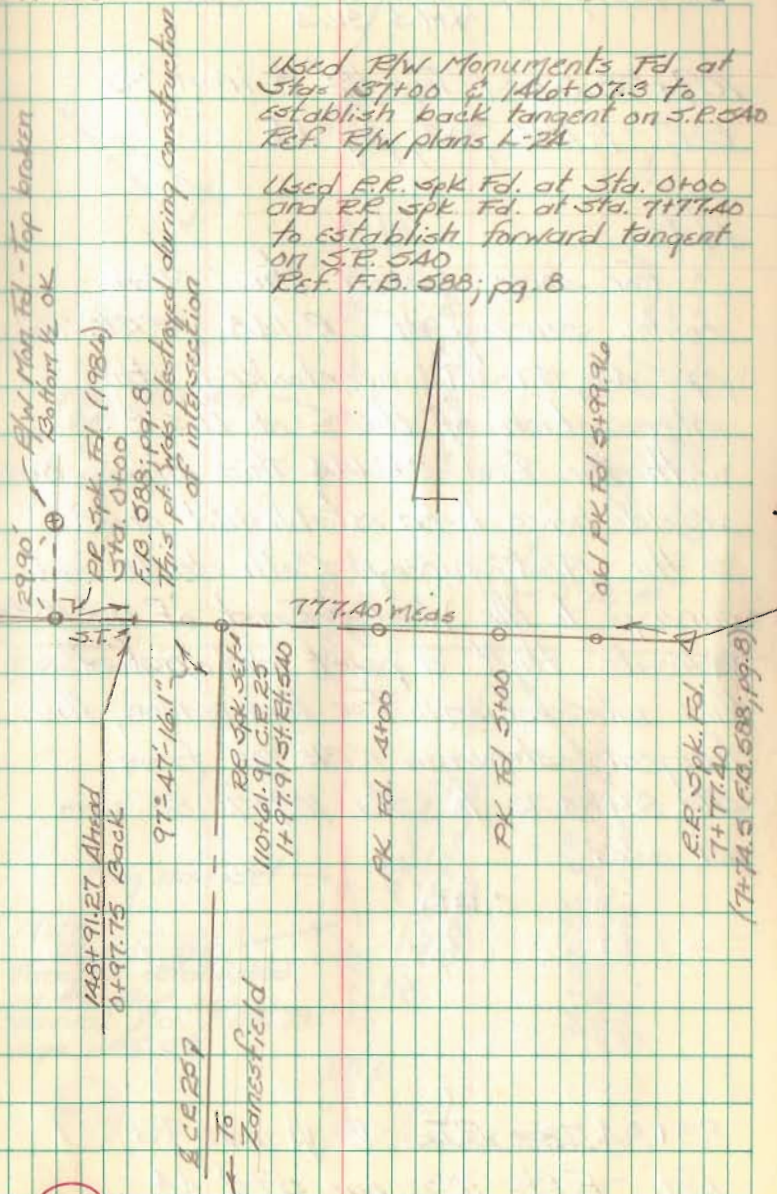 Used R/W Monuments Fd. at
Stas 137+00 & 146+07.3 to
establish back tangent on S.R. 540
Ref. R/W plans L-24
Used R.R. spk Fd. at Sta. 0+00
and RR spk. Fd. at Sta. 7+77.40
to establish forward tangent
on S.R. 540
Ref. F.B. 588; pg. 8
R/W Mon. Fd - Top broken
Bottom ½ OK
29.90'
RR Spk. Fd. (1986)
Sta. 0+00
F.B. 588; pg. 8
This pt. was destroyed during construction
of intersection
S.T.
777.40' Meas
old PK Fd. 5+99.96
97°-47'-16.1"
RR Spk. Set
110+61.91 C.R. 25
1+97.91 St. Rt. 540
PK Fd. 4+00
PK Fd 5+00
R.R. Spk. Fd.
7+77.40
(7+74.5 F.B. 588; pg. 8)
148+91.27 Ahead
0+97.75 Back
C.R. 25
To
Zanesfield